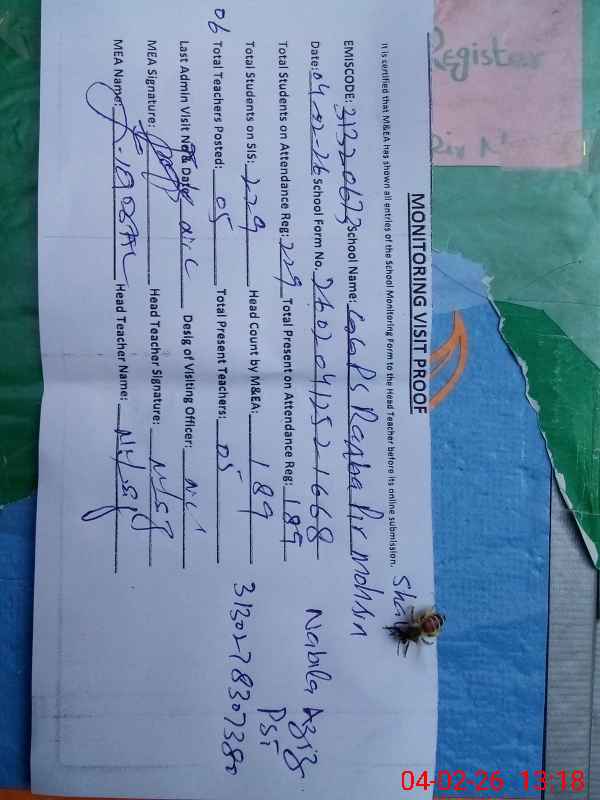 Register
Pir
MONITORING VISIT PROOF
It is certified that M&EA has shown all entries of the School Monitoring Form to the Head Teacher before its online submission.
EMISCODE: 31320673 School Name: GGPS Ranjha Pir Mohsin
Shah
Date: 04-02-26 School Form No. 26020412521668
Total Students on Attendance Reg: 229 Total Present on Attendance Reg: 189
Total Students on SIS: 229 Head Count by M&EA: 189
06 Total Teachers Posted: 05 Total Present Teachers: 05
Last Admin Visit No & Date: Desig of Visiting Officer:
MEA Signature: Head Teacher Signature:
MEA Name: Head Teacher Name:
Nabila Aziz
PST
3130278307380
04-02-26 13:18